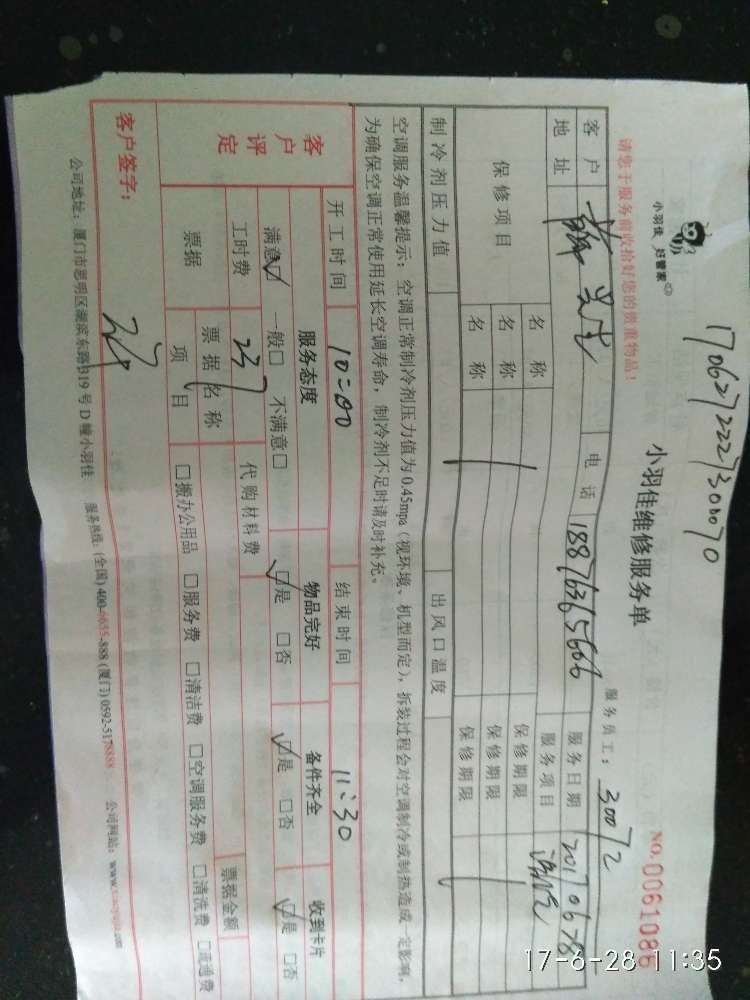 1706272227300070
小羽佳 好管家
小羽佳维修服务单
服务员工: 30072
NO. 0061086
请您于服务前收拾好您的贵重物品!
客户 电话 18876365606 服务日期
地址 服务项目
保修项目 名称 保修期限
名称 保修期限
名称 保修期限
制冷剂压力值 出风口温度
空调服务温馨提示: 空调正常制冷剂压力值为0.45mpa (视环境、机型而定), 拆装过程会对空调制冷或制热造成一定影响,
为确保空调正常使用延长空调寿命, 制冷剂不足时请及时补充。
客户评定
开工时间 10:00 结束时间 11:30
服务态度 物品完好 备件齐全 收到卡片
满意☑ 一般□ 不满意□ ☑是 □否 ☑是 □否 ☑是 □否
工时费 237 代购材料费
票据 票据名称 票据金额
项目 □搬办公用品 □服务费 □清洁费 □空调服务费 □清洗费 □流通费
客户签字:
公司地址: 厦门市思明区湖滨东路319号D幢小羽佳 服务热线: (全国) 400-6655-888 (厦门) 0592-5178888 公司网站: www.xiaoyujia.com
17-6-28 11:35